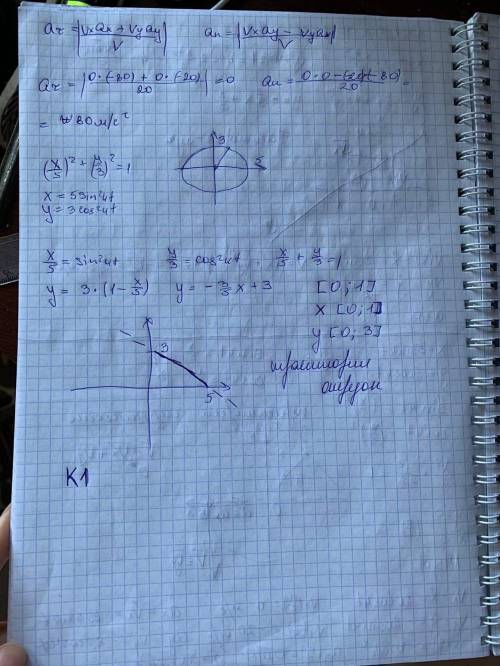 aτ = |Vxax + Vyay / V| an = |Vxay - Vyax / V|
aτ = |0·(-80) + 0·(-20) / 20| = 0 an = 0·0 - (-20)(-80) / 20 =
= 80 м/с²
(x/5)² + (y/3)² = 1
3
5
x = 5 sin²πt
y = 3 cos²πt
x/5 = sin²πt y/3 = cos²πt x/5 + y/3 = 1
y = 3·(1 - x/5) y = -3/5 x + 3 [0; 1]
x [0; 1]
y [0; 3]
x
3
5
траектория
отрезок
К1